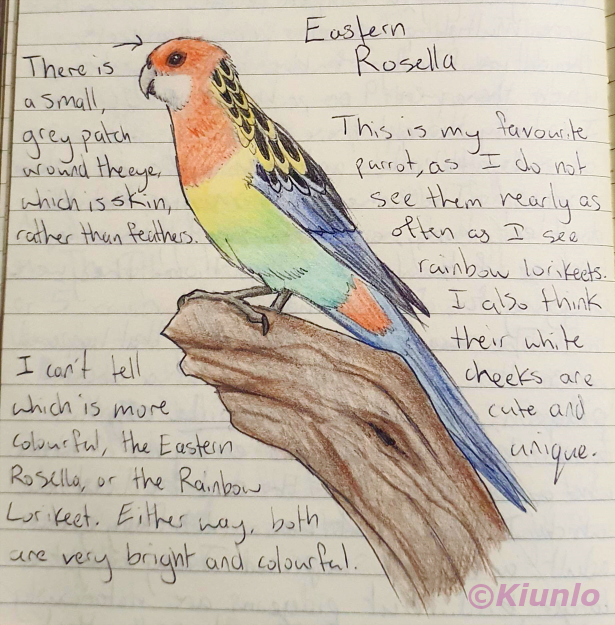 Eastern
Rosella
There is
a small,
grey patch
around the eye,
which is skin,
rather than feathers.
This is my favourite
parrot, as I do not
see them nearly as
often as I see
rainbow lorikeets.
I also think
their white
cheeks are
cute and
unique.
I can't tell
which is more
colourful, the Eastern
Rosella, or the Rainbow
Lorikeet. Either way, both
are very bright and colourful.
©Kiunlo